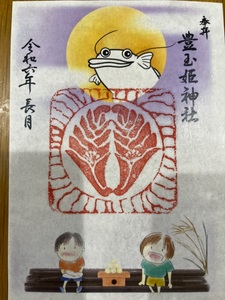 奉拝
豊玉姫神社
令和六年 長月